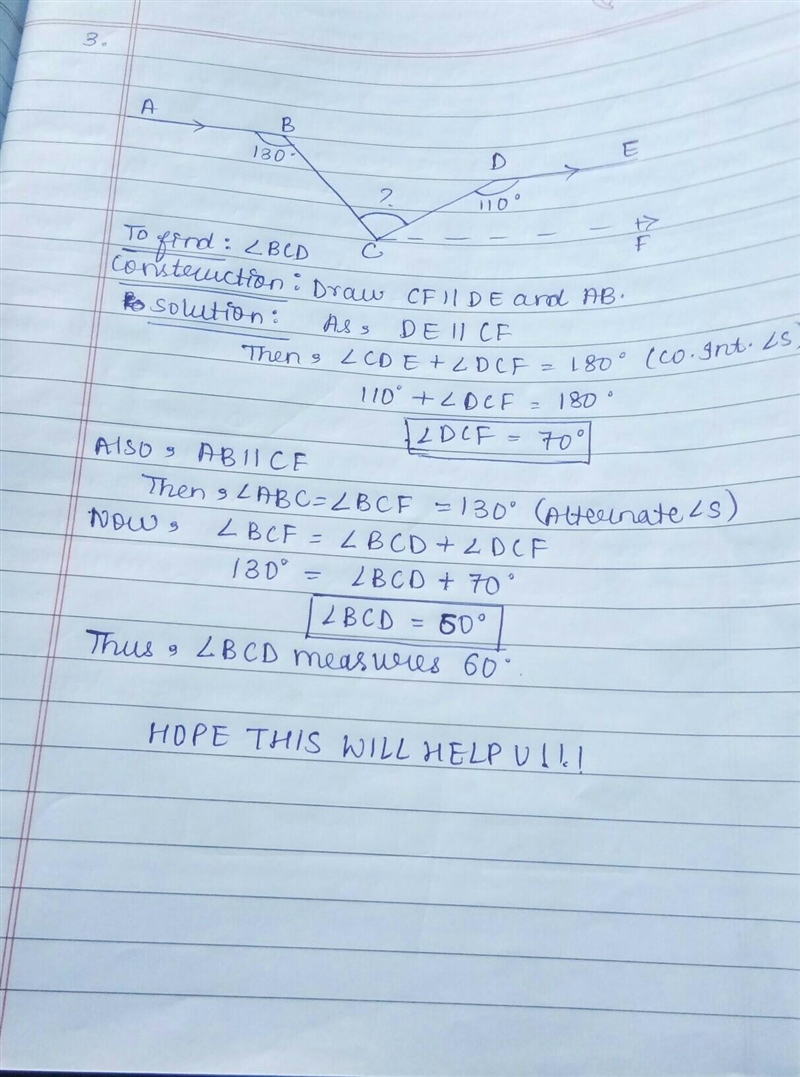 3.
A
B
130°
D
E
110°
?
C
F
To find: ∠BCD
Construction: Draw CF || DE and AB.
Solution: As, DE || CF
Then, ∠CDE + ∠DCF = 180° (Co. Int. ∠S)
110° + ∠DCF = 180°
∠DCF = 70°
Also, AB || CF
Then, ∠ABC = ∠BCF = 130° (Alternate ∠S)
Now, ∠BCF = ∠BCD + ∠DCF
130° = ∠BCD + 70°
∠BCD = 60°
Thus, ∠BCD measures 60°.
HOPE THIS WILL HELP U!!!!